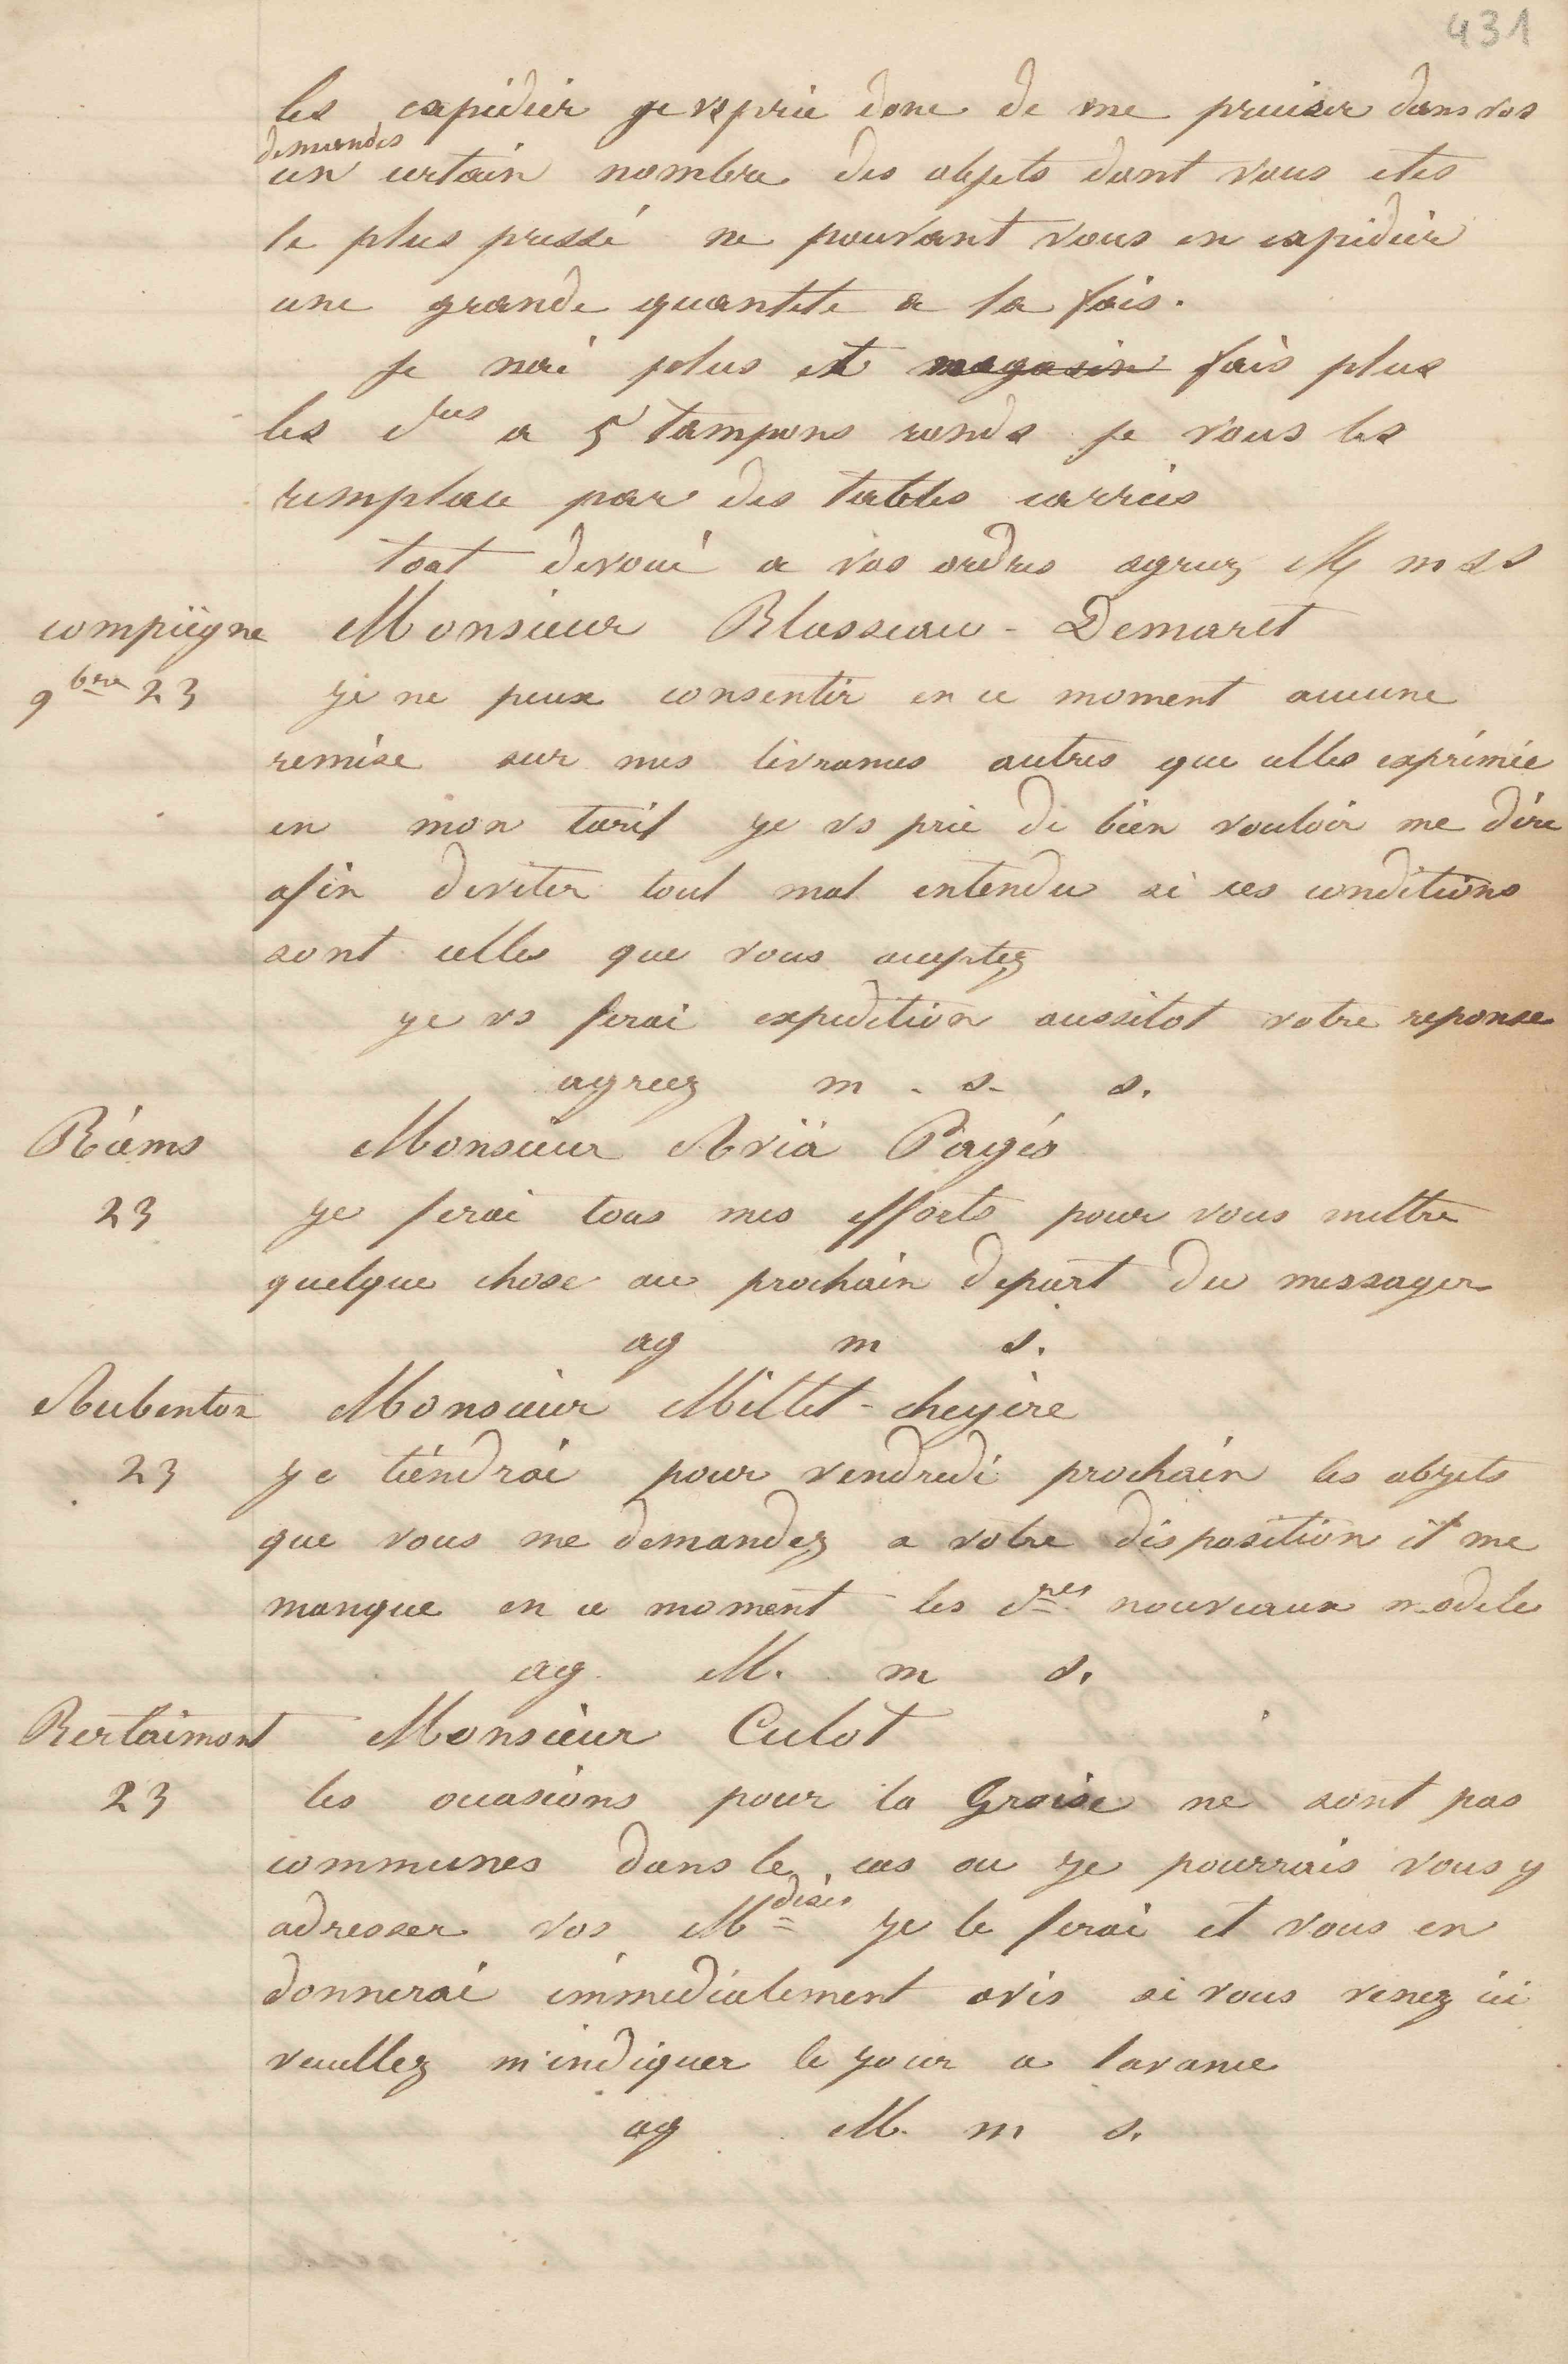 431
les expedier je vs prie donc de me preciser dans vos
demandes
un certain nombre des objets dont vous etes
le plus pressé ne pouvant vous en expedier
une grande quantete a la fois.
Je nai plus et magasin fais plus
les cres a 5 tampons ronds je vous les
remplace par des tables carrées
tout devoué a vos ordres agreez M m ss
compiègne Monsieur Blasseau - Demaret
9bre 23 je ne peux consentir en ce moment aucune
remise sur mes livrances autres que celles exprimée
en mon tarif je vs prie de bien vouloir me dire
afin deviter tout mal entendu si ces conditions
sont celles que vous acceptez
je vs ferai expedition aussitot votre reponse
agreez m. s. s.
Reims Monsieur Pagés
23 je ferai tous mes efforts pour vous mettre
quelque chose au prochain depart du messager
ag m s.
Aubenton Monsieur Millet - cheyère
23 je tiendrai pour vendredi prochain les objets
que vous me demandez a votre disposition il me
manque en ce moment les cres nouveaux modele
ag. M. m s.
Bertaimont Monsieur Culot
23 les occasions pour la Groise ne sont pas
communes dans le cas ou je pourrais vous y
adresser vos Mdises je le ferai et vous en
donnerai immediatement avis si vous venez ici
veuillez m'indiquer le jour a lavance
ag M. m s.